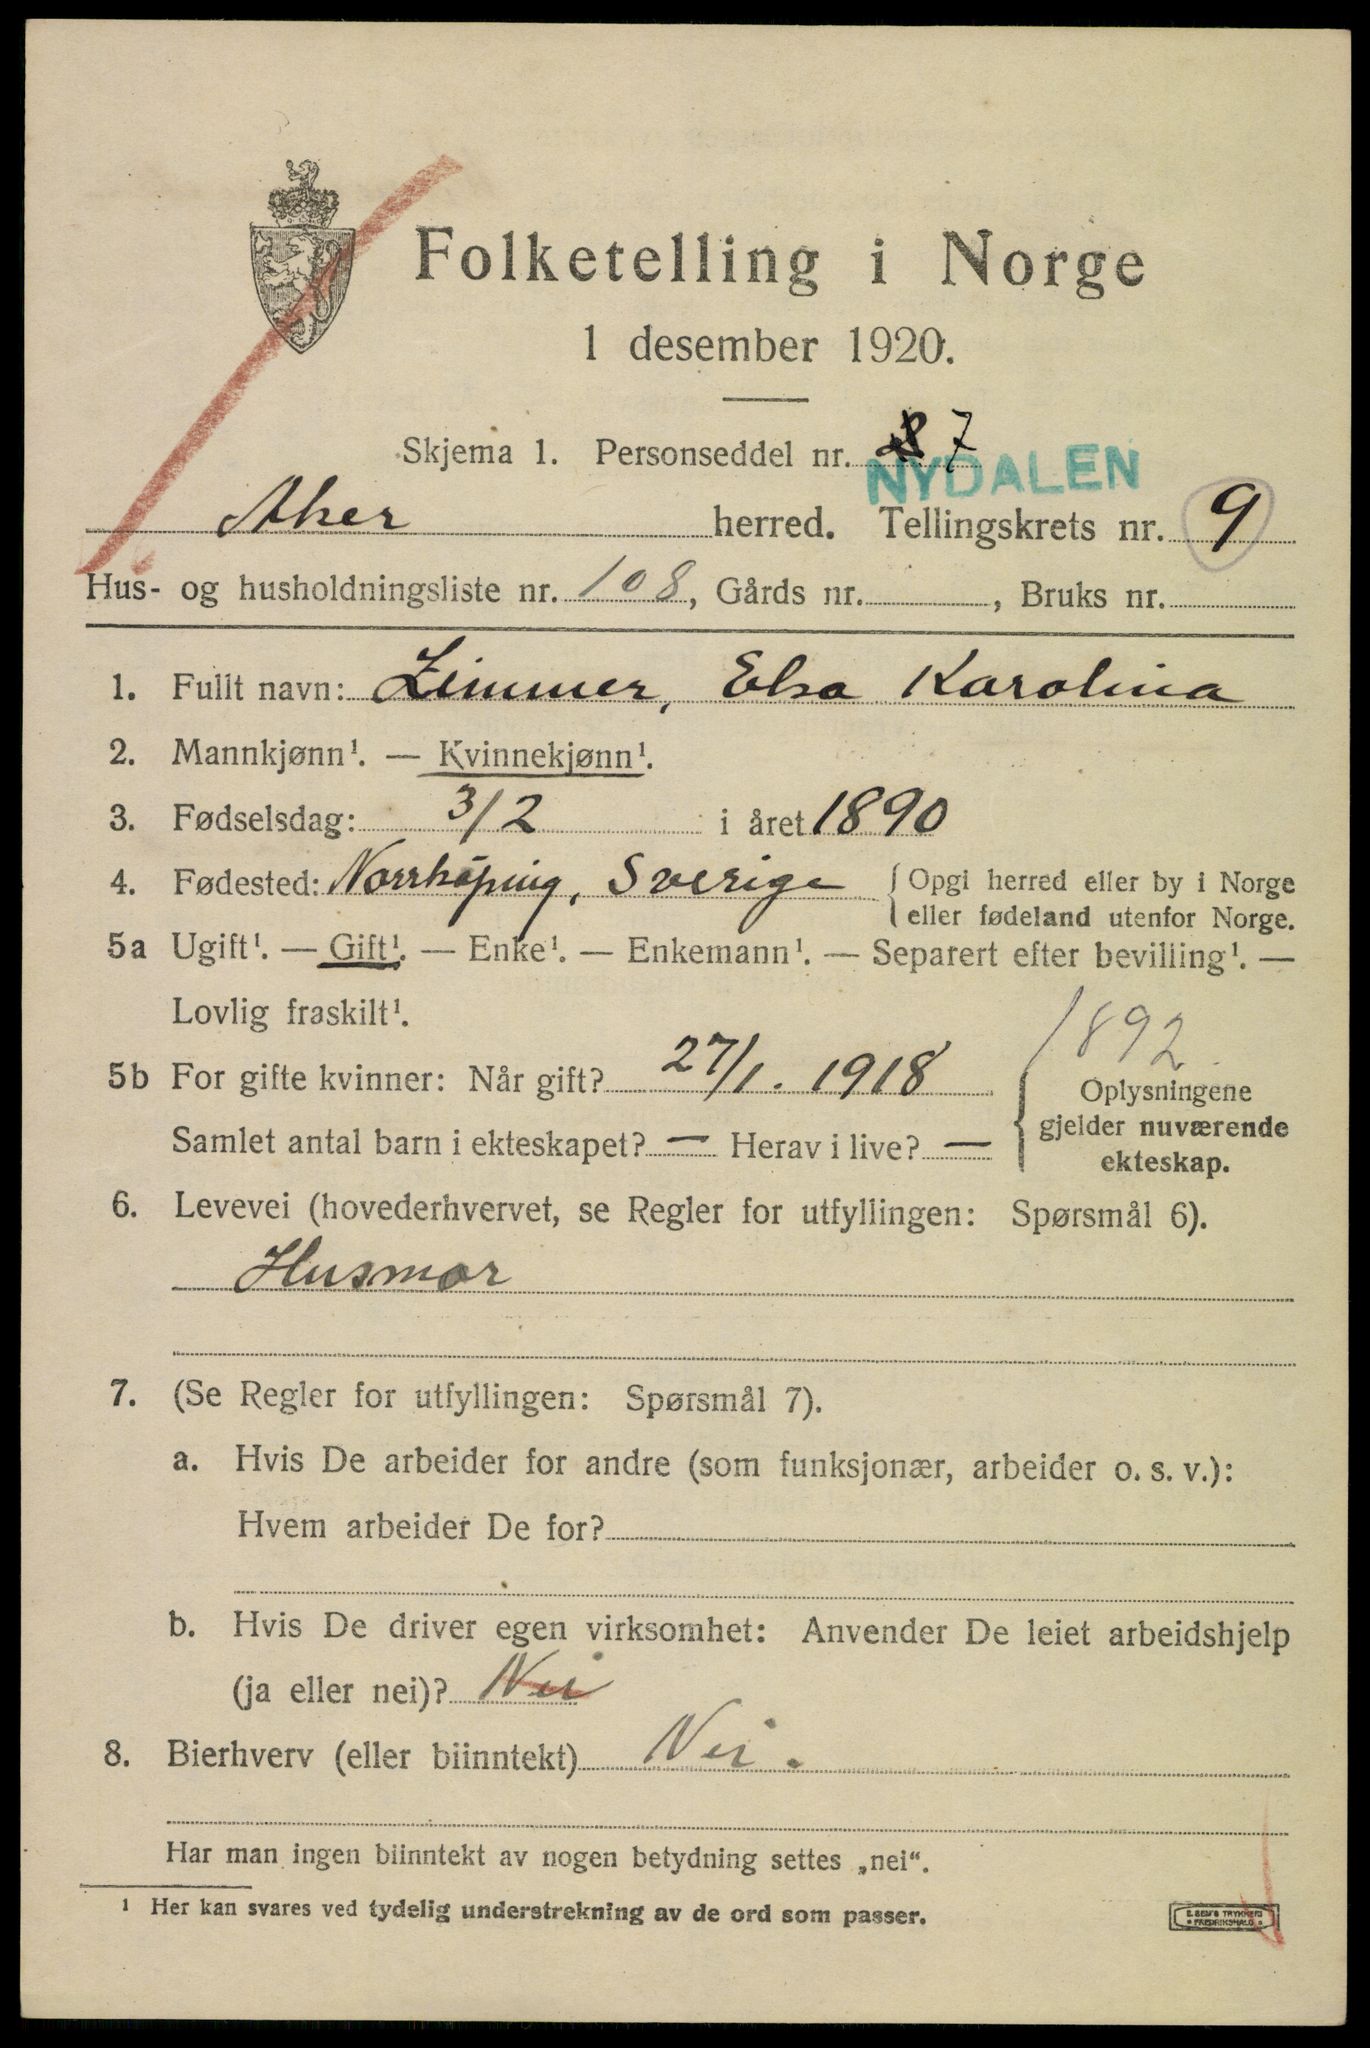 Folketelling i Norge
1 desember 1920.
Skjema 1. Personseddel nr. 7
NYDALEN
Aker herred. Tellingskrets nr. 9
Hus- og husholdningsliste nr. 108, Gårds nr. , Bruks nr.
1. Fullt navn: Zimmer, Elsa Karolina
2. Mannkjønn¹. — Kvinnekjønn¹.
3. Fødselsdag: 3/2 i året 1890
4. Fødested: Norrköping, Sverige { Opgi herred eller by i Norge
eller fødeland utenfor Norge.
5a Ugift¹. — Gift¹. — Enke¹. — Enkemann¹. — Separert efter bevilling¹. —
Lovlig fraskilt¹.
1892
5b For gifte kvinner: Når gift? 27/1. 1918
Samlet antal barn i ekteskapet? — Herav i live? —
Oplysningene
gjelder nuværende
ekteskap.
6. Levevei (hovederhvervet, se Regler for utfyllingen: Spørsmål 6).
Husmor
7. (Se Regler for utfyllingen: Spørsmål 7).
a. Hvis De arbeider for andre (som funksjonær, arbeider o. s. v.):
Hvem arbeider De for?
b. Hvis De driver egen virksomhet: Anvender De leiet arbeidshjelp
(ja eller nei)? Nei
8. Bierhverv (eller biinntekt) Nei.
Har man ingen biinntekt av nogen betydning settes „nei“.
¹ Her kan svares ved tydelig understrekning av de ord som passer.
E. SEM'S TRYKKERI
FREDRIKSHALD